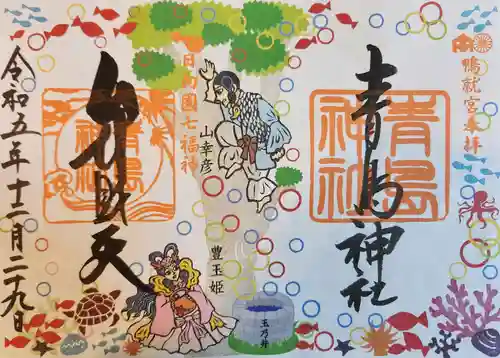 鴨就宮奉拝
青島神社
青島
神社
日向國七福神
山幸彦
豊玉姫
玉乃井
弁財天
青島
神社
令和五年十二月二十九日